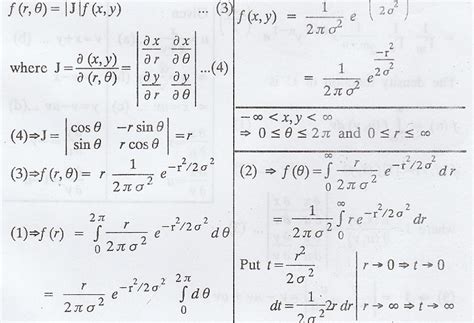 f(r, θ) = |J| f(x, y) ... (3)
where J = ∂(x, y)/∂(r, θ) = | ∂x/∂r ∂x/∂θ ; ∂y/∂r ∂y/∂θ | ...(4)
(4)⇒J = | cos θ −r sin θ ; sin θ r cos θ | = r
(3)⇒f(r, θ) = r 1/2πσ² e^−r²/2σ²
(1)⇒f(r) = ∫₀^2π r/2πσ² e^−r²/2σ² dθ
= r/2πσ² e^−r²/2σ² ∫₀^2π dθ
f(x, y) = 1/2πσ² e^( /2σ²)
= 1/2πσ² e^−r²/2σ²
−∞ < x, y < ∞
⇒ 0 ≤ θ ≤ 2π and 0 ≤ r ≤ ∞
(2) ⇒ f(θ) = ∫₀^∞ r/2πσ² e^−r²/2σ² dr
= 1/2πσ² ∫₀^∞ r e^−r²/2σ² dr
Put t = r²/2σ² | r → 0 ⇒ t → 0
dt = 1/2σ² 2r dr | r → ∞ ⇒ t → ∞